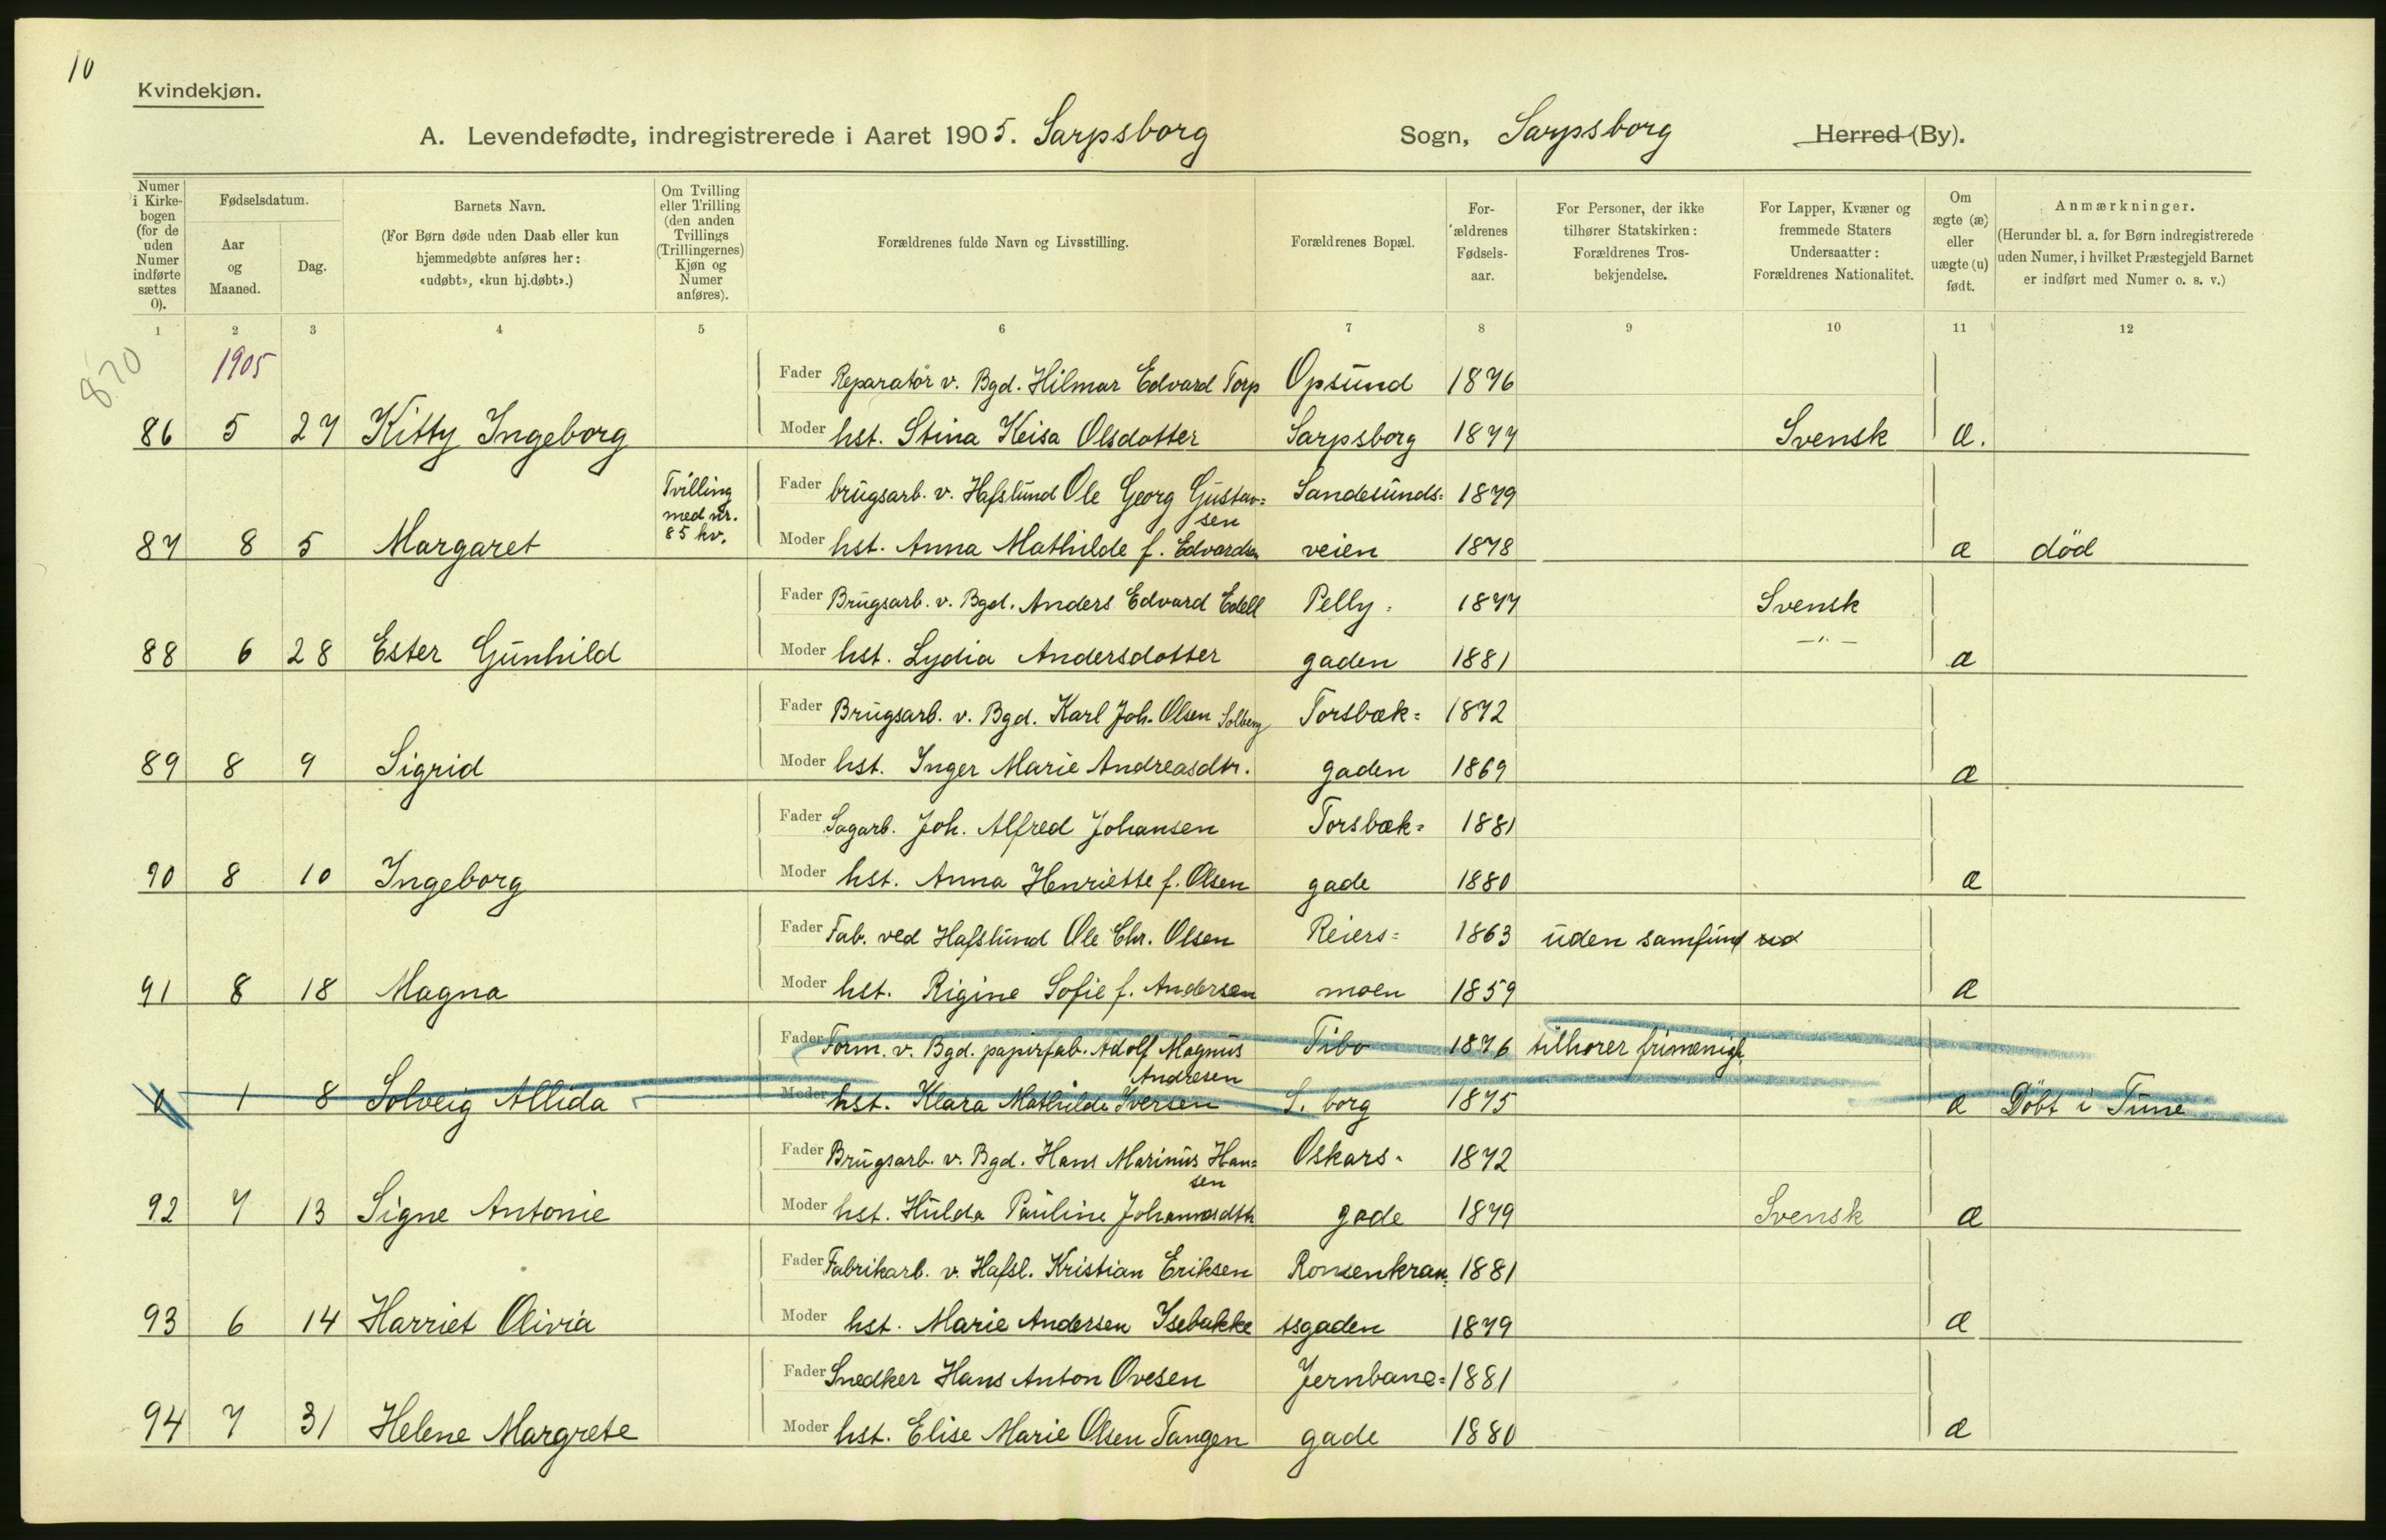 10
Kvindekjøn.
A. Levendefødte, indregistrerede i Aaret 1905. Sarpsborg Sogn, Sarpsborg Herred (By).
Numer i Kirkebogen (for de uden Numer indførte sættes 0).
Fødselsdatum.
Aar og Maaned.
Dag.
Barnets Navn.
(For Børn døde uden Daab eller kun hjemmedøbte anføres her: «udøbt», «kun hj.døbt».)
Om Tvilling eller Trilling (den anden Tvillings (Trillingernes) Kjøn og Numer anføres).
Forældrenes fulde Navn og Livsstilling.
Forældrenes Bopæl.
Forældrenes Fødselsaar.
For Personer, der ikke tilhører Statskirken: Forældrenes Trosbekjendelse.
For Lapper, Kvæner og fremmede Staters Undersaatter: Forældrenes Nationalitet.
Om ægte (æ) eller uægte (u) født.
Anmærkninger.
(Herunder bl. a. for Børn indregistrerede uden Numer, i hvilket Præstegjeld Barnet er indført med Numer o. s. v.)
1 2 3 4 5 6 7 8 9 10 11 12
870
1905
Fader Reparatör v. Bgd. Hilmar Edvard Torp Opsund 1876
86 5 27 Kitty Ingeborg Moder hst. Stina Keisa Olsdotter Sarpsborg 1877 Svensk æ.
Tvilling med nr. 85 kv.
Fader brugsarb. v. Hafslund Ole Georg Gustav= Sandesunds= 1879
sen
87 8 5 Margaret Moder hst. Anna Mathilde f. Edvardsen veien 1878 æ död
Fader Brugsarb. v. Bgd. Anders Edvard Edell Pelly= 1877 Svensk
88 6 28 Ester Gunhild Moder hst. Lydia Andersdotter gaden 1881 —"— æ
Fader Brugsarb. v. Bgd. Karl Joh. Olsen Solberg Torsbæk= 1872
89 8 9 Sigrid Moder hst. Inger Marie Andreasdtr. gaden 1869 æ
Fader Sagarb. Joh. Alfred Johansen Torsbæk= 1881
90 8 10 Ingeborg Moder hst. Anna Henriette f. Olsen gade 1880 æ
Fader Fab. ved Hafslund Ole Chr. Olsen Reiers= 1863 uden samfund
91 8 18 Magna Moder hst. Rigine Sofie f. Andersen moen 1859 æ
Fader Form. v. Bgd. papirfab. Adolf Magnus Tibo 1876 tilhorer frimenigh.
Andresen
0 1 8 Solveig Allida Moder hst. Klara Mathilde Iversen S. borg 1875 æ Döbt i Tune
Fader Brugsarb. v. Bgd. Hans Marinus Han= Oskars= 1872
sen
92 7 13 Signe Antonie Moder hst. Hulda Pauline Johannesdtr gade 1879 Svensk æ
Fader Fabrikarb. v. Hafsl. Kristian Eriksen Ronsenkran= 1881
93 6 14 Harriet Olivia Moder hst. Marie Andersen Isebakke tsgaden 1879 æ
Fader Snedker Hans Anton Ovesen Jernbane= 1881
94 7 31 Helene Margrete Moder hst. Elise Marie Olsen Tangen gade 1880 æ